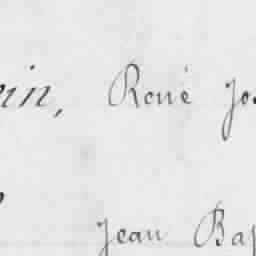 in, René Jos
Jean Bap